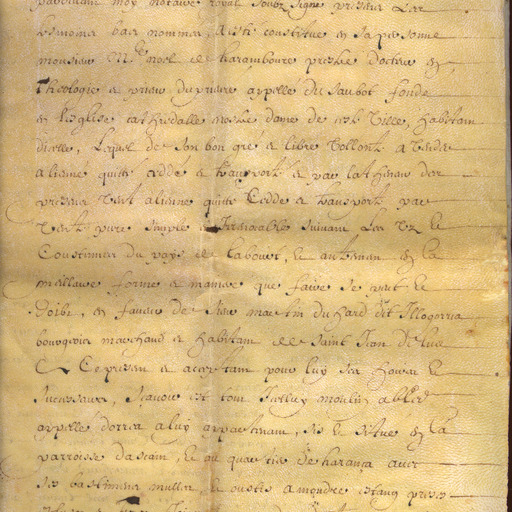 pardevant moy notaire royal soubz signé presens les
tesmoins bas nommés, a esté constitué en sa personne
monsieur Me noel de haramboure prestre docteur en
Theologie et prieur du prieuré appellé du saubot fondé
en l'esglise cathedralle nostre dame de cest Ville, habitant
d'icelle, Lequel de son bon gré et libre Vollonté a Vendu
aliené quitté ceddé et transporté et par la theneur des
presens Vent aliene quitte Cedde et transporte par
Vente pure simple et Irrevocable suivant Les Uz et
Coustumes du pays de labourt, et autrement en la
meilleure forme et maniere que faire se peut et
doibt, en faveur de sieur martin duhard dit Illogorria
bourgeois marchand et habitant de Saint Jean de Luz
Ce present et acceptant pour luy ses hoirs et
successeurs, scavoir est tout Icelluy moulin a bled
appellé dorria a luy appartenant, sis et situé en la
parroisse dascain, et au quartier de harança avec
ses bastimens mulles et oustis a moudre estang presse